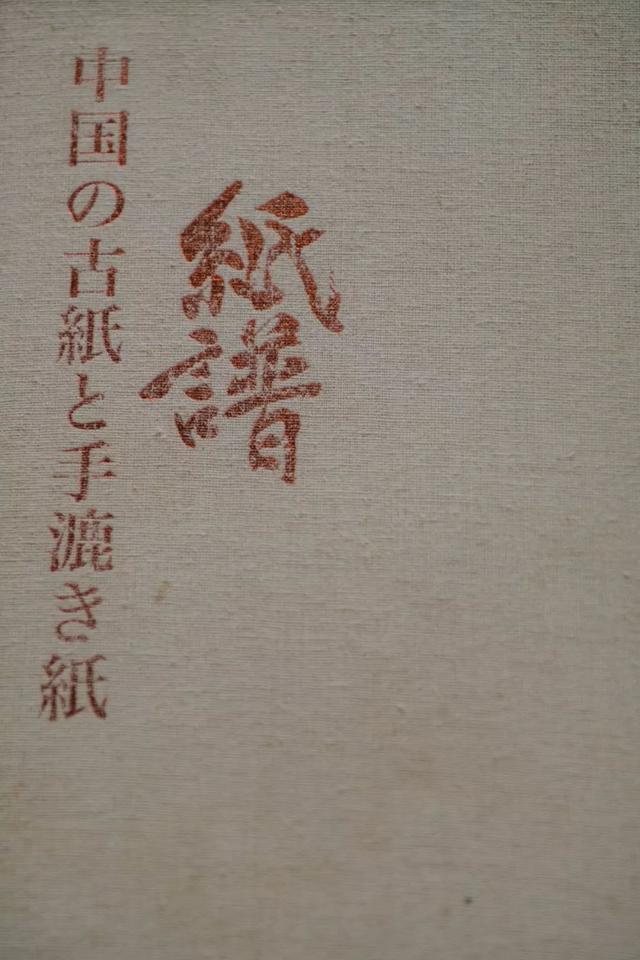 紙譜
中国の古紙と手漉き紙